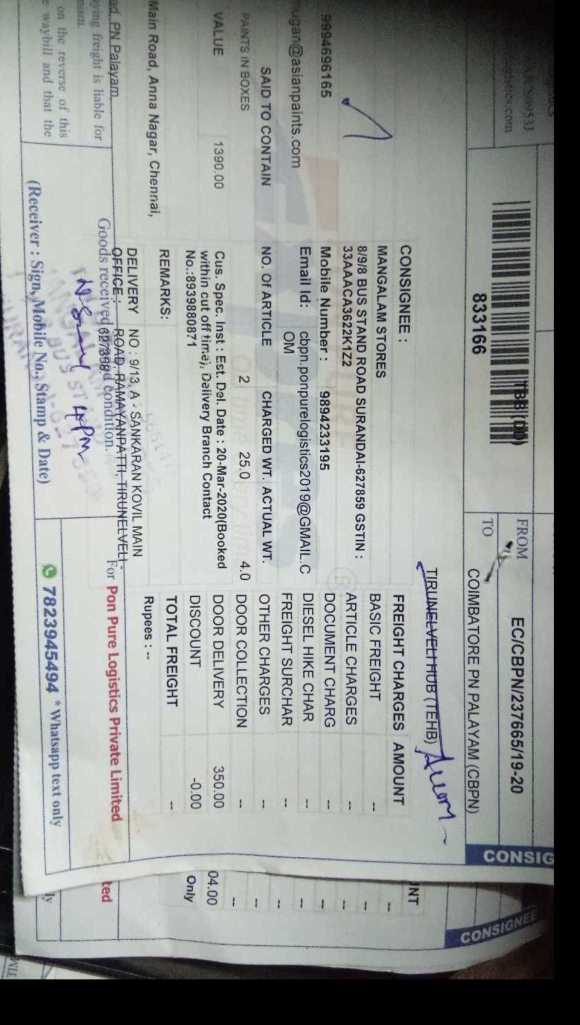 833166
TBB (DD)
FROM EC/CBPN/237665/19-20
COIMBATORE PN PALAYAM (CBPN)
TO
TIRUNELVELI HUB (TEHB)
CONSIG
CONSIGNEE
9994696165
ugan@asianpaints.com
CONSIGNEE :
MANGALAM STORES
8/9/8 BUS STAND ROAD SURANDAI-627859 GSTIN :
33AAACA3622K1Z2
Mobile Number : 9894233195
Email Id: cbpn.ponpurelogistics2019@GMAIL.C
OM
SAID TO CONTAIN NO. OF ARTICLE CHARGED WT. ACTUAL WT.
PAINTS IN BOXES 2 25.0 4.0
VALUE 1390.00
Cus. Spec. Inst : Est. Del. Date : 20-Mar-2020(Booked
within cut off time), Delivery Branch Contact
No.:8939880871
REMARKS:
FREIGHT CHARGES AMOUNT
BASIC FREIGHT --
ARTICLE CHARGES --
DOCUMENT CHARG --
DIESEL HIKE CHAR --
FREIGHT SURCHAR --
OTHER CHARGES --
DOOR COLLECTION --
DOOR DELIVERY 350.00
DISCOUNT -0.00
TOTAL FREIGHT --
Rupees : --
NT
04.00
Only
Main Road, Anna Nagar, Chennai,
DELIVERY NO : 9/13, A - SANKARAN KOVIL MAIN
OFFICE : ROAD, RAMAYANPATTI, TIRUNELVELI -
627358
ad, PN Palayam
ying freight is liable for
on the reverse of this
e waybill and that the
Goods received condition.
4 PM
(Receiver : Sign, Mobile No., Stamp & Date)
For Pon Pure Logistics Private Limited
ted
7823945494 * Whatsapp text only
ly